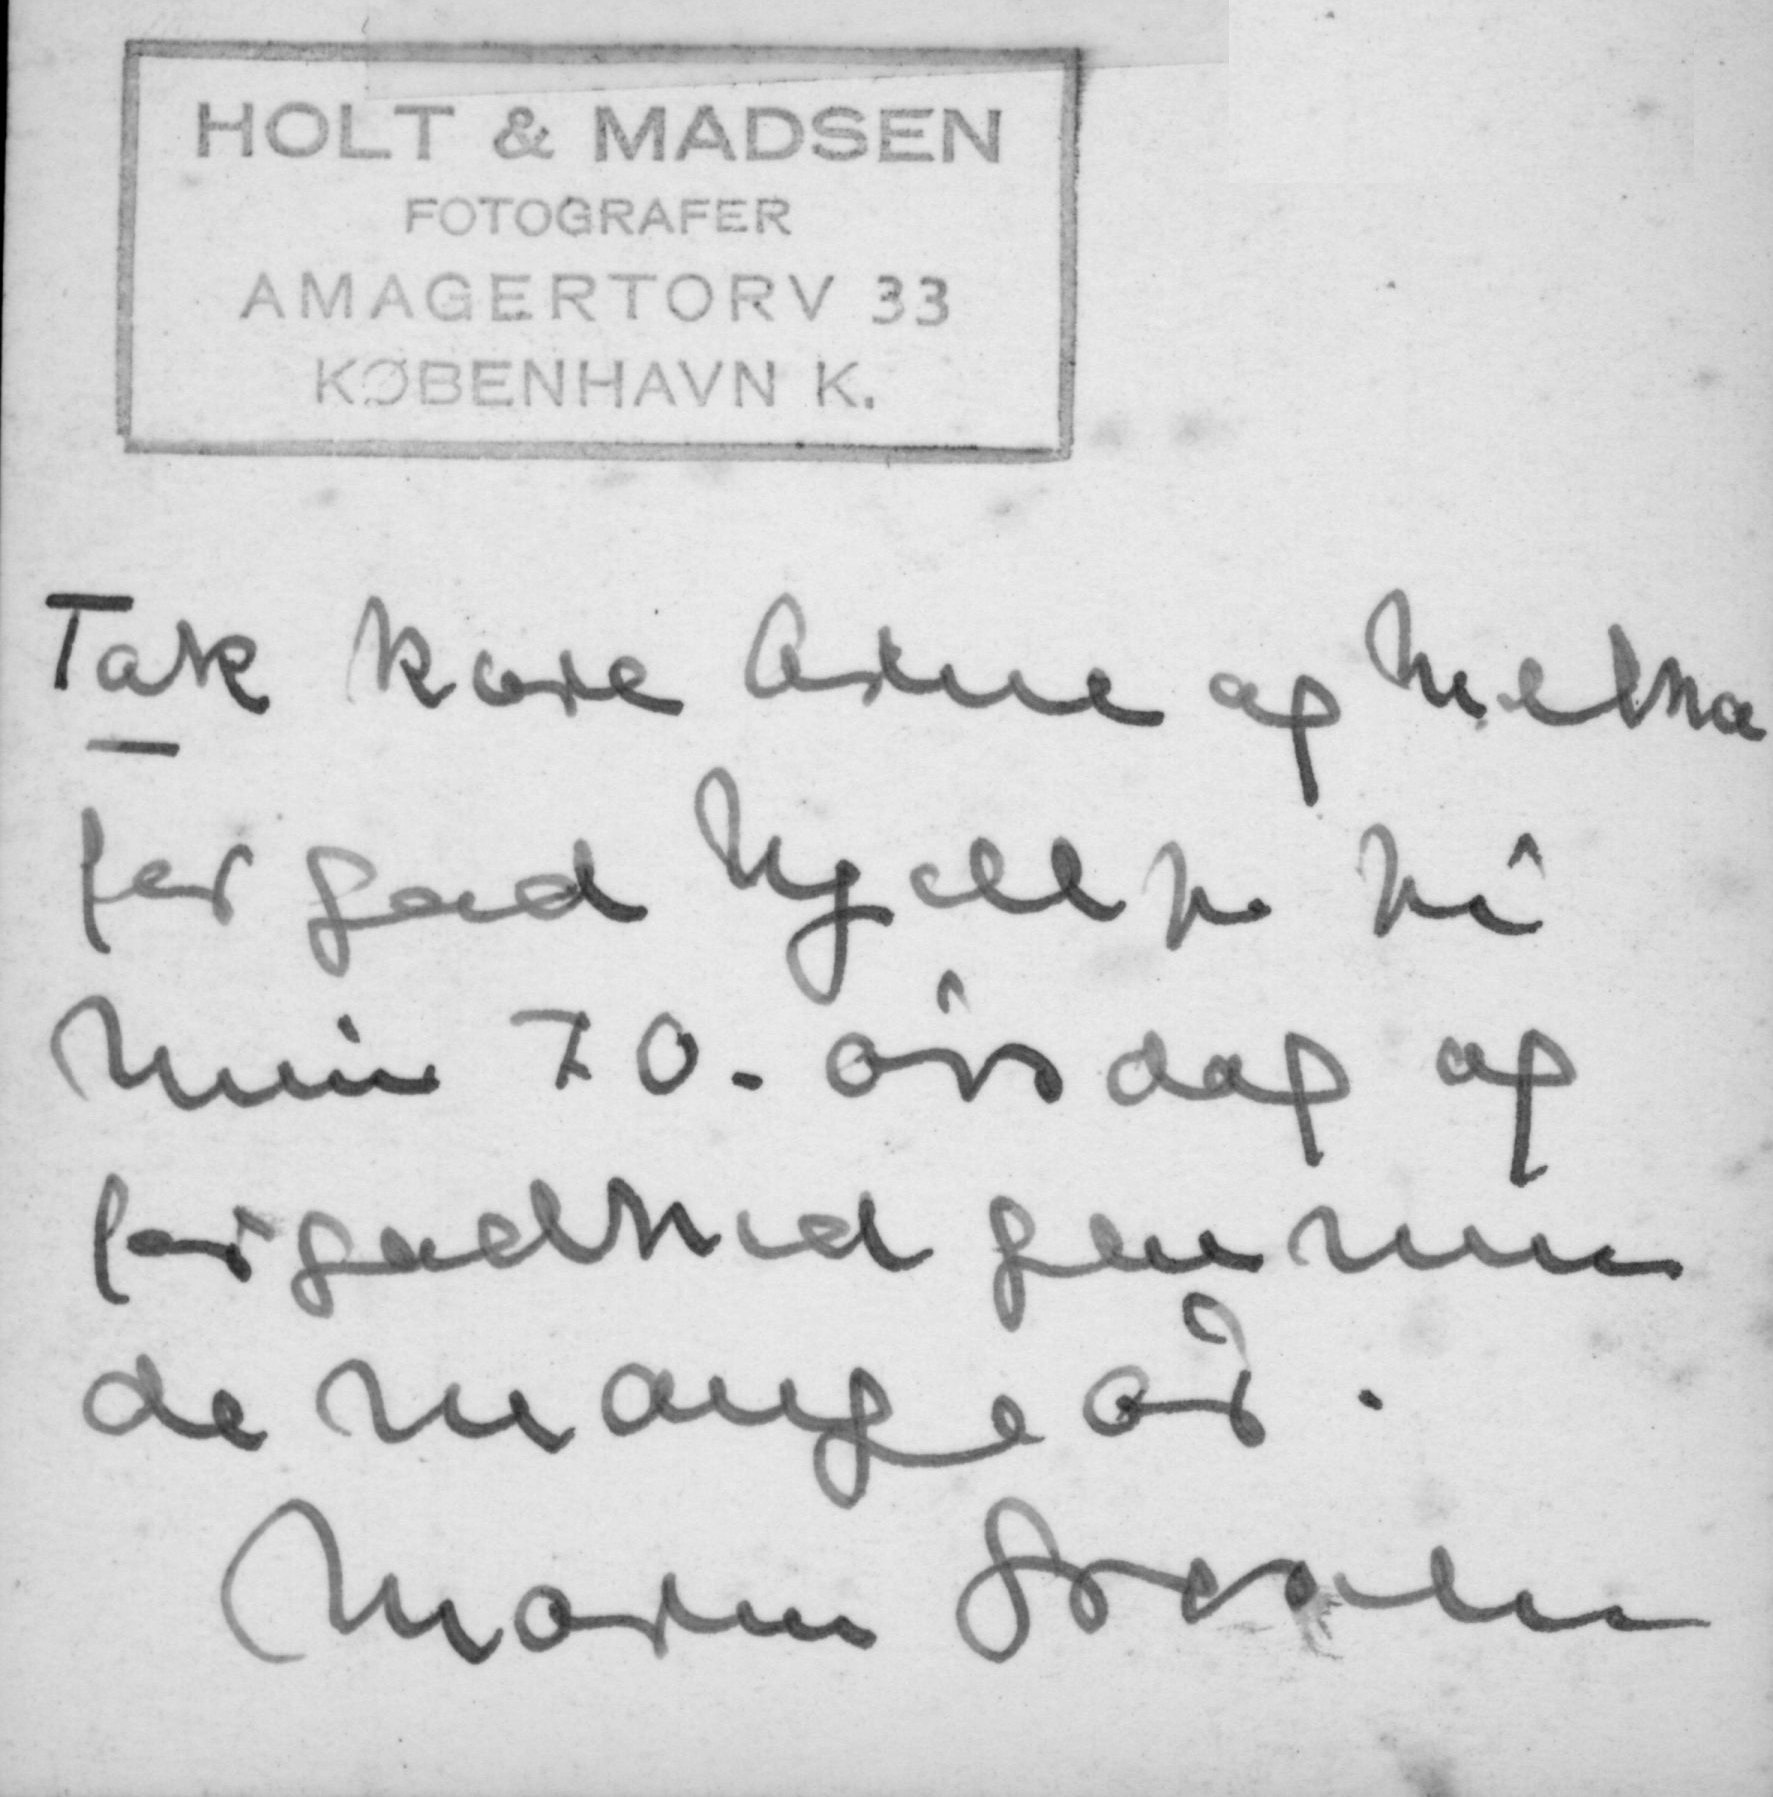 HOLT & MADSEN
FOTOGRAFER
AMAGERTORV 33
KØBENHAVN K.
Tak kære Arne og
for god hjælp på
min 70. årsdag og
for godhed gennem
de mange år.